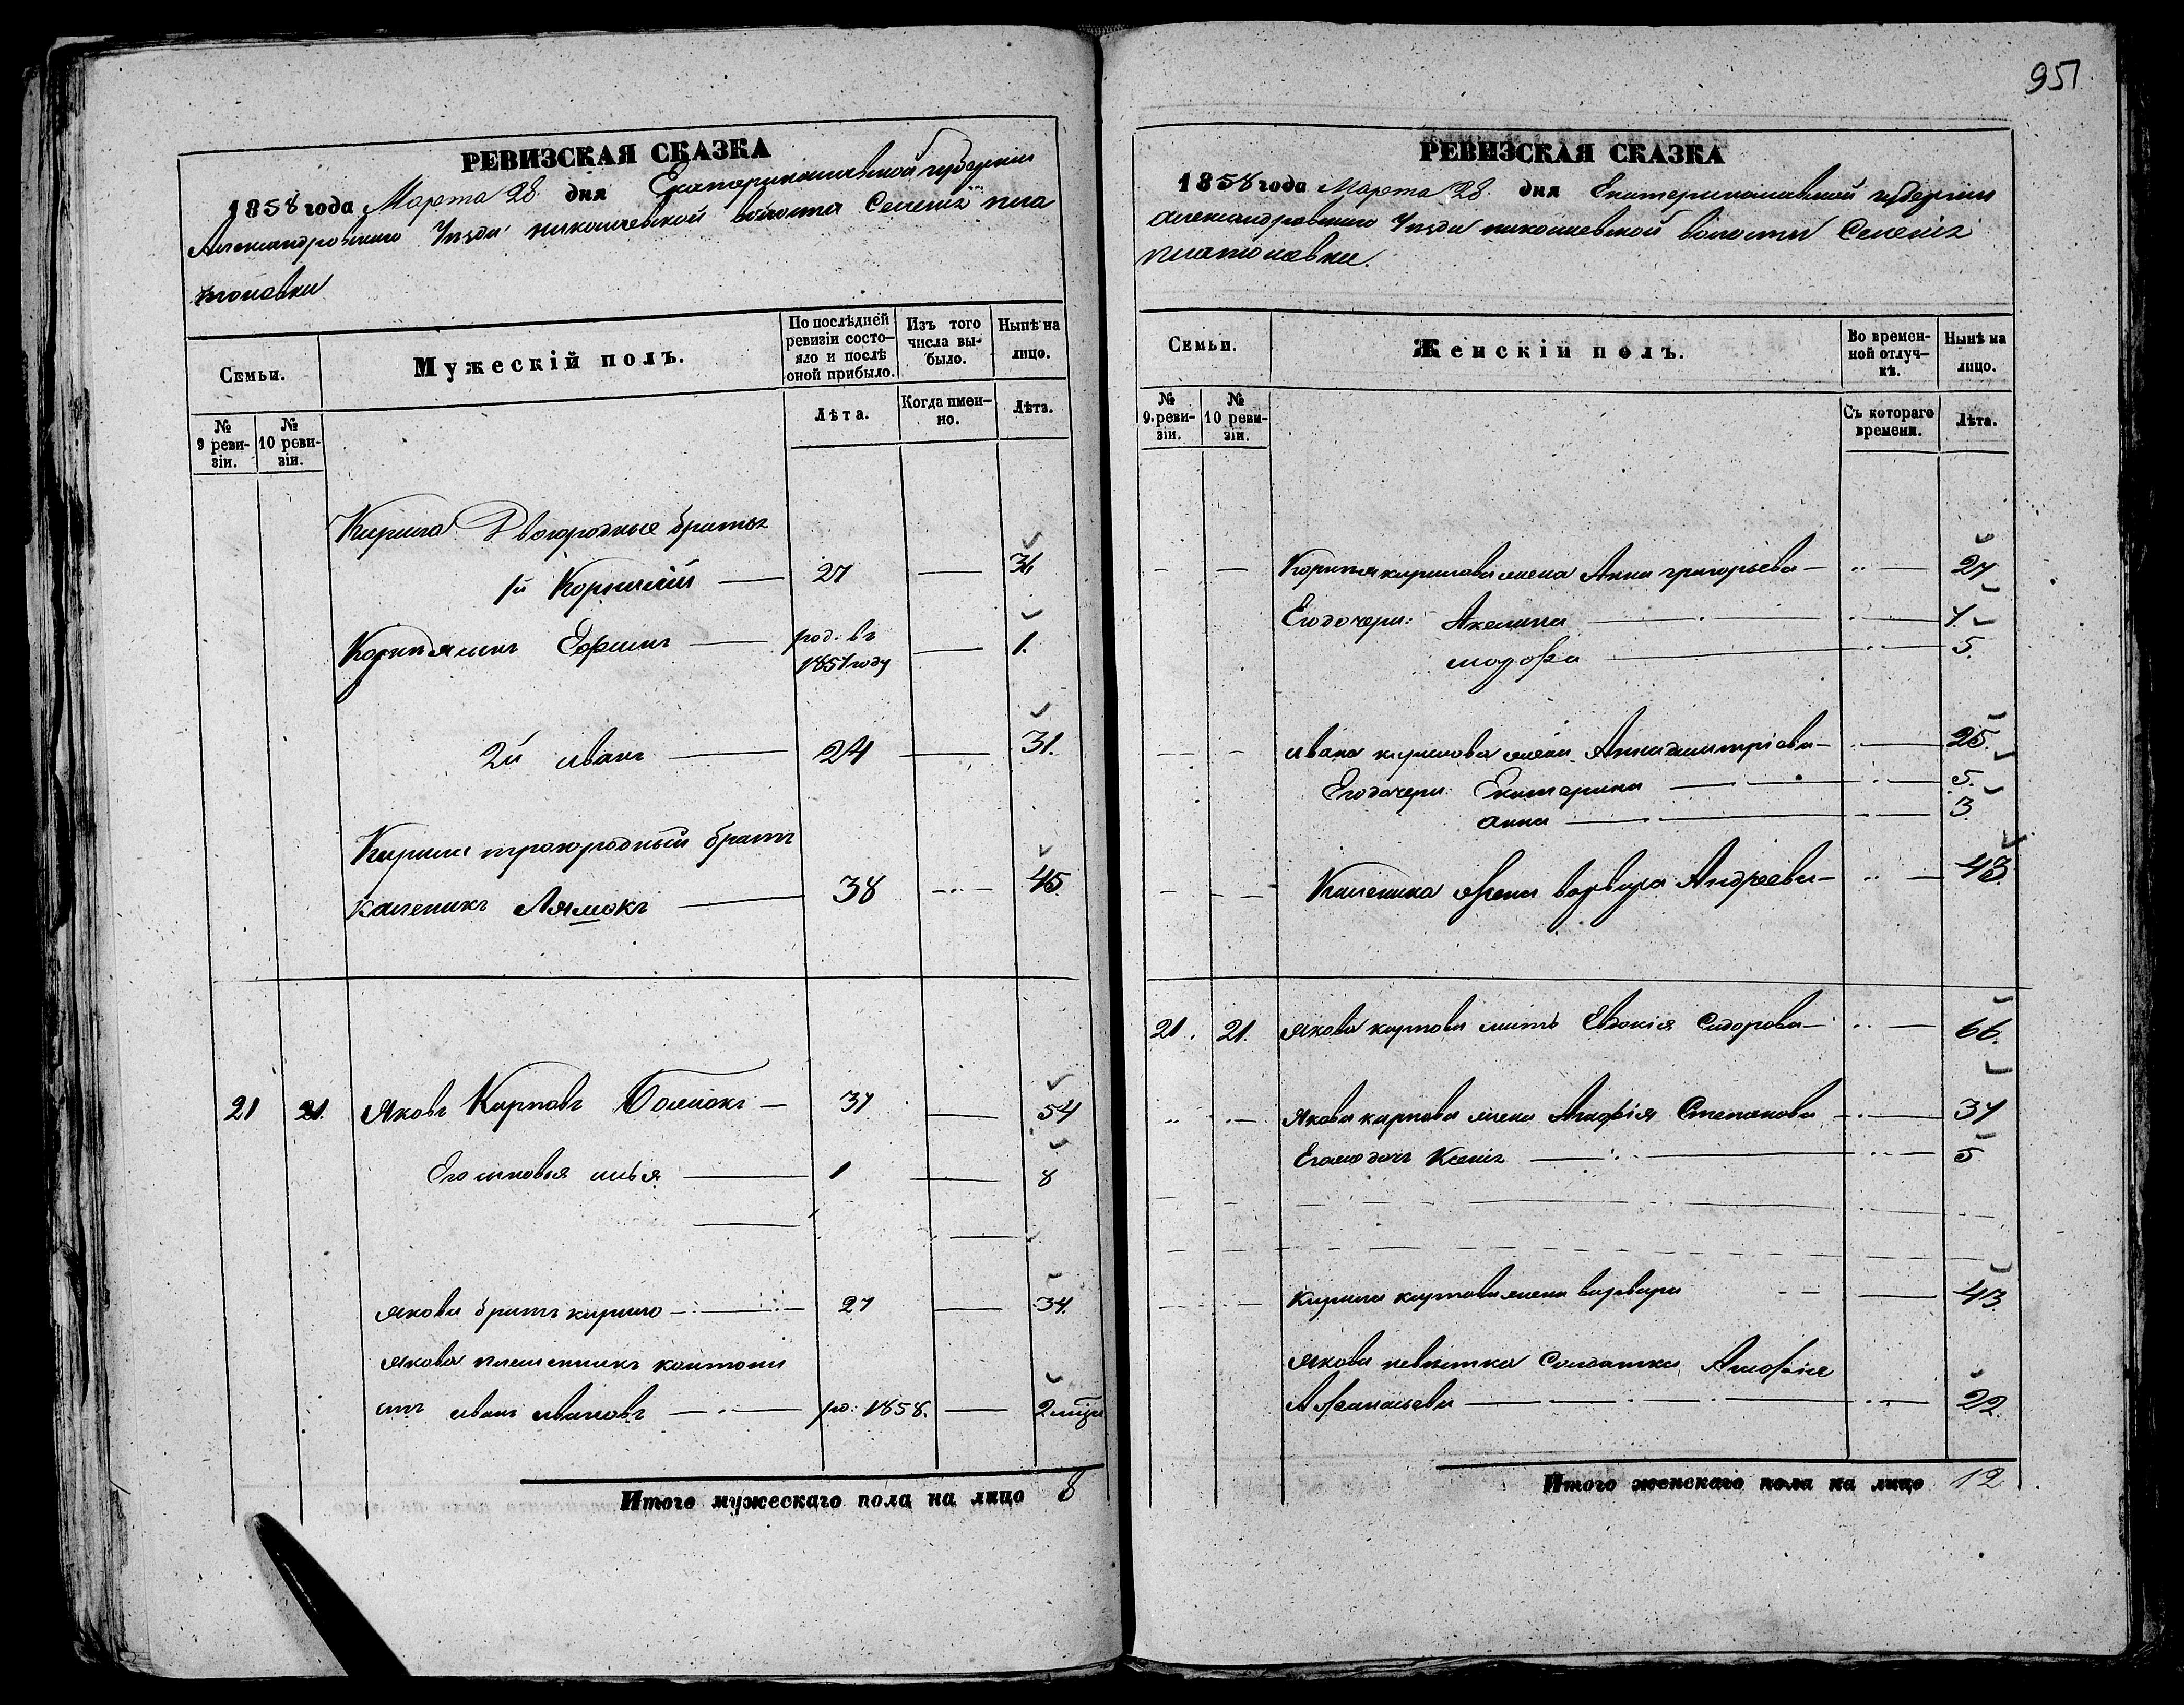 951
РЕВИЗСКАЯ СКАЗКА
1858 года Марта 28 дня Екатеринославской губерніи
Александровскаго Уезда Николаевской волости Селенія Пла
тоновки
Семьи.
Мужескій полъ.
По послѣдней ревизіи состо-яло и послѣ оной прибыло.
Изъ того числа вы-было.
Нынѣ на лицо.
№ 9 реви-зіи.
№ 10 реви-зіи.
Лѣта.
Когда имен-но.
Лѣта.
Кирила Двоюродные братья
1й Корнилій — 27 —
Ефимъ — род. въ — 1.
1857 году
2й Иванъ — 24 — 31.
Кирила троюродный братъ
Каленикъ — 38 — 45
21 21. Яковъ Карповъ — 37 — 54
Его сыновья Илья — 1 — 8
Якова братъ Кирило — 27 — 34.
Якова племенникъ кантони
стъ Иванъ Ивановъ — ро: 1858. — 2
Итого мужескаго пола на лицо 8
РЕВИЗСКАЯ СКАЗКА
1858 года Марта 28 дня Екатеринославской губерніи
Александровскаго Уезда Николаевской волости Селенія
Платоновки.
Семьи.
Женскій полъ.
Во времен-ной отлуч-кѣ.
Нынѣ на лицо.
№ 9 реви-зіи.
№ 10 реви-зіи.
Съ котораго времени.
Лѣта.
Кирилова жена Анна Григорьева — 27
Его дочери: Акелина —
Марфа — 5.
Ивана Кирилова жена Анна Дмитріева — 25.
Его дочери: Екатерина — 5.
Анна — 3
Каленика жена Варвара Андреева — 43.
21. 21. Якова Карпова мать Евдокія Сидорова — 66.
Якова Карпова жена Агафія Степанова — 37
дочь Ксенія — 5
Кирила Карпова жена Варвара — 43.
Якова невѣстка Солдатка Агафія
Афанасьева — 22.
Итого женскаго пола на лицо 12